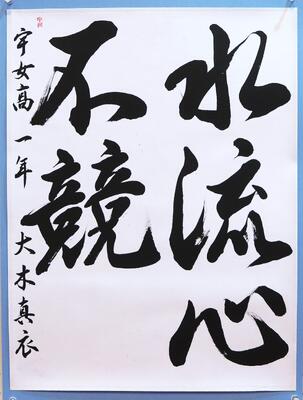 水流心
不競
宇女高一年 大木真衣